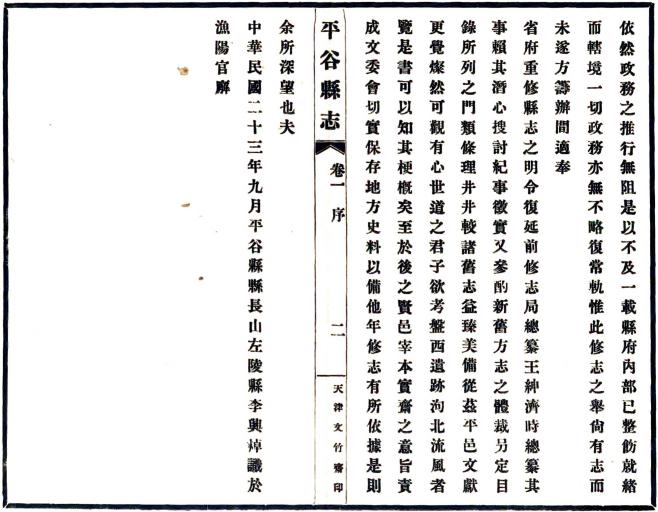 依然政務之推行無阻是以不及一載縣府內部已整飭就緒
而轄境一切政務亦無不略復常軌惟此修志之舉尙有志而
未遂方籌辦間適奉
省府重修縣志之明令復延前修志局總纂王紳濟時總纂其
事賴其潛心搜討紀事徵實又參酌新舊方志之體裁另定目
錄所列之門類條理井井較諸舊志益臻美備從茲平邑文獻
更覺燦然可觀有心世道之君子欲考盤西遺跡泃北流風者
覽是書可以知其梗概矣至於後之賢邑宰本實齋之意旨責
成文委會切實保存地方史料以備他年修志有所依據是則
平谷縣志
卷一 序
二
天津文竹齋印
余所深望也夫
中華民國二十三年九月平谷縣縣長山左陵縣李興焯識於
漁陽官廨